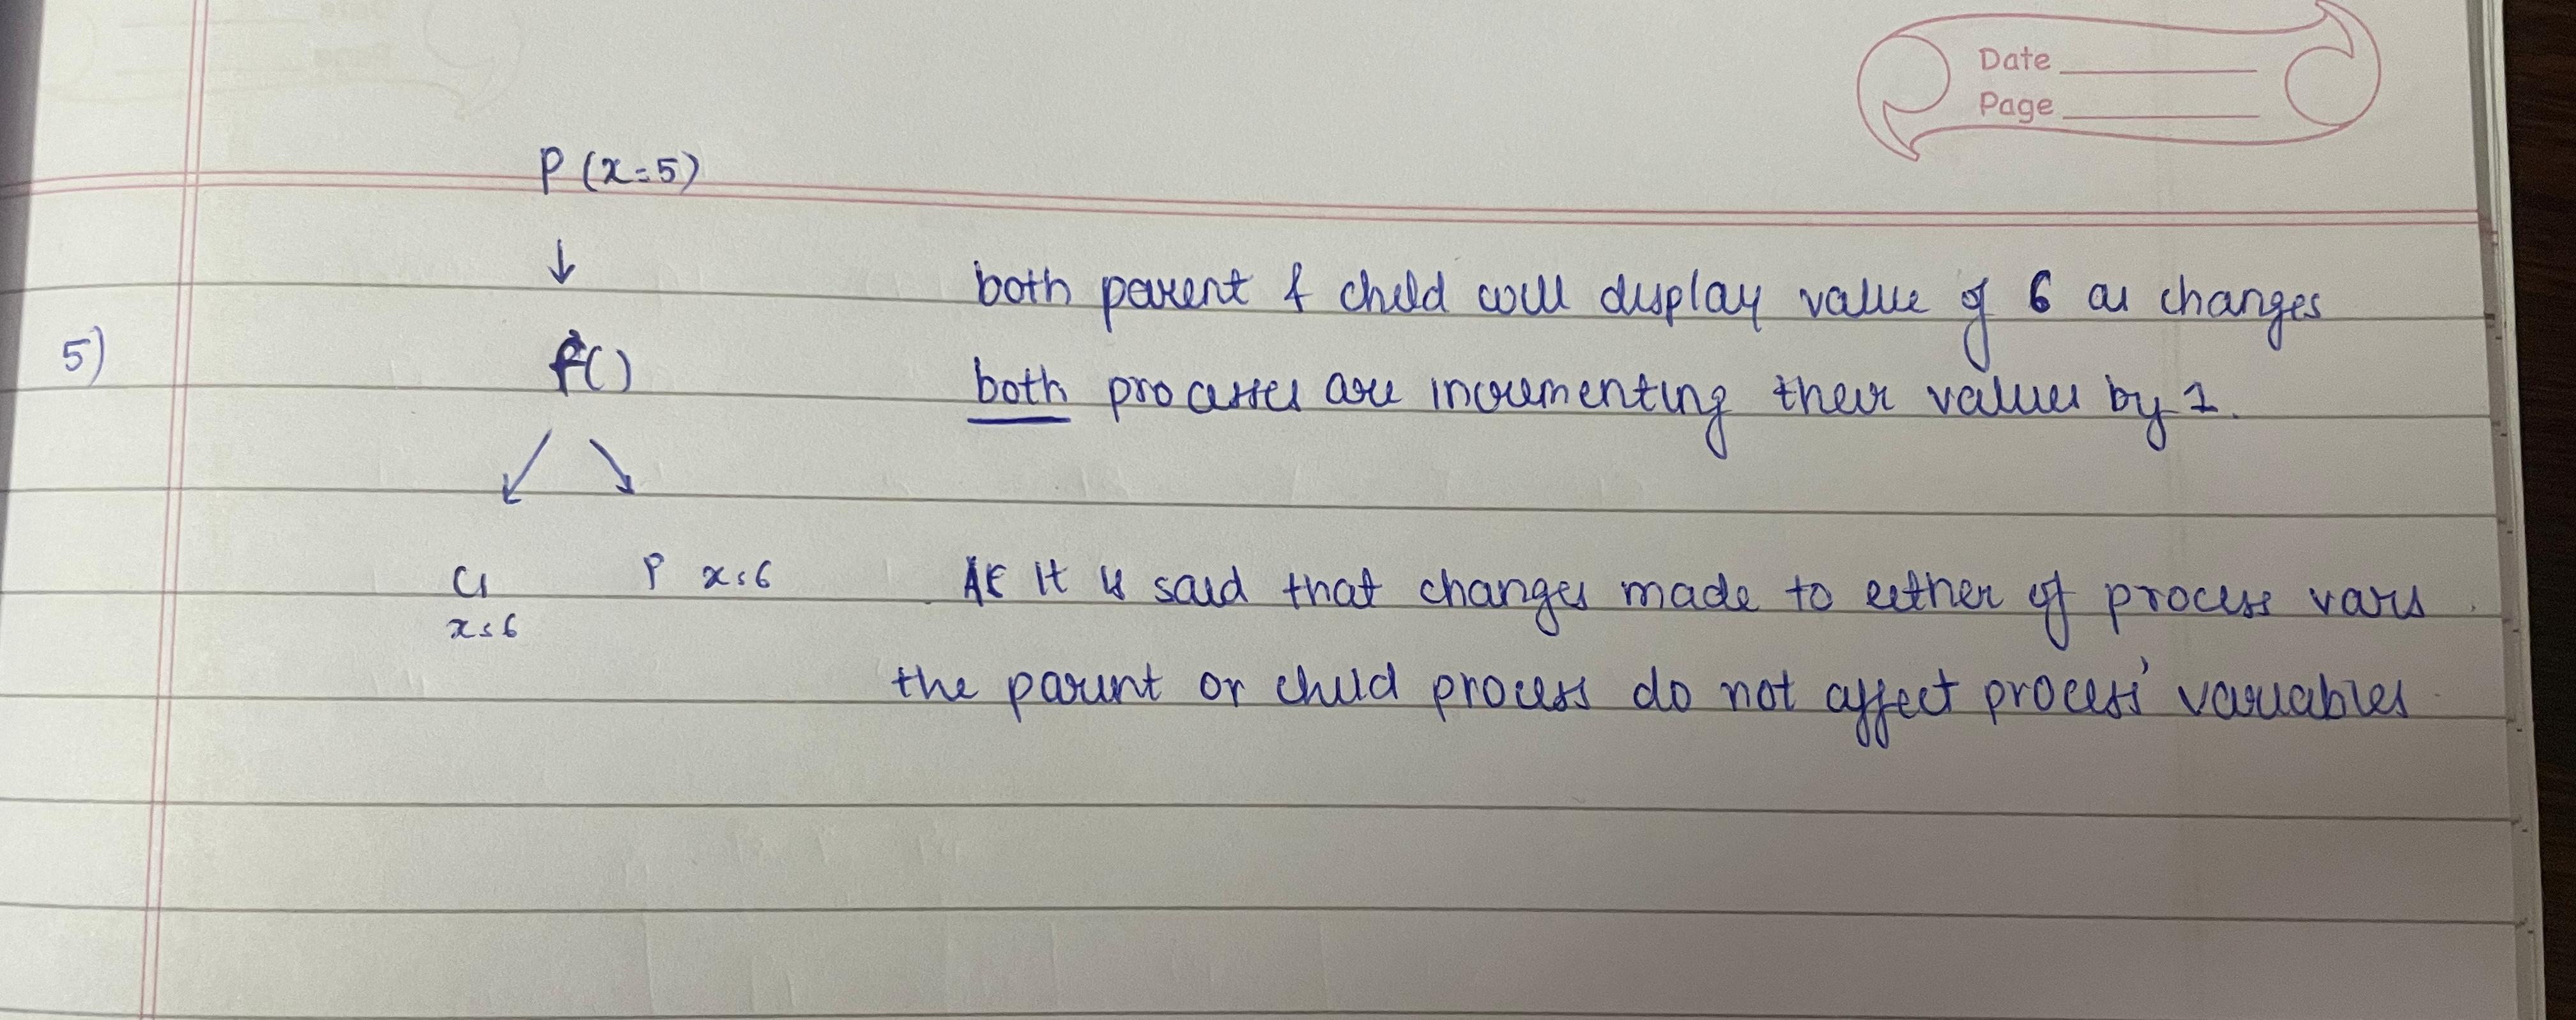 Date
Page
P (x=5)
↓
both parent & child will display value of 6 as changes
5)
f()
both processes are incrementing their values by 1.
C1
P x=6
As it is said that changes made to either of process vars
x=6
the parent or child process do not affect process' variables